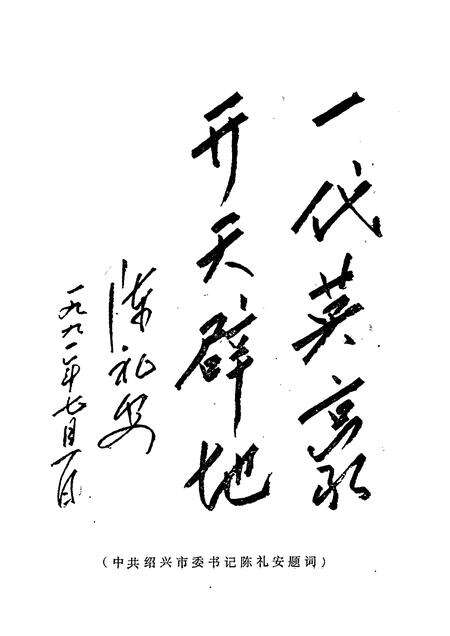 一代英豪
开天辟地
陈礼安
一九九一年七月一日
（中共绍兴市委书记陈礼安题词）